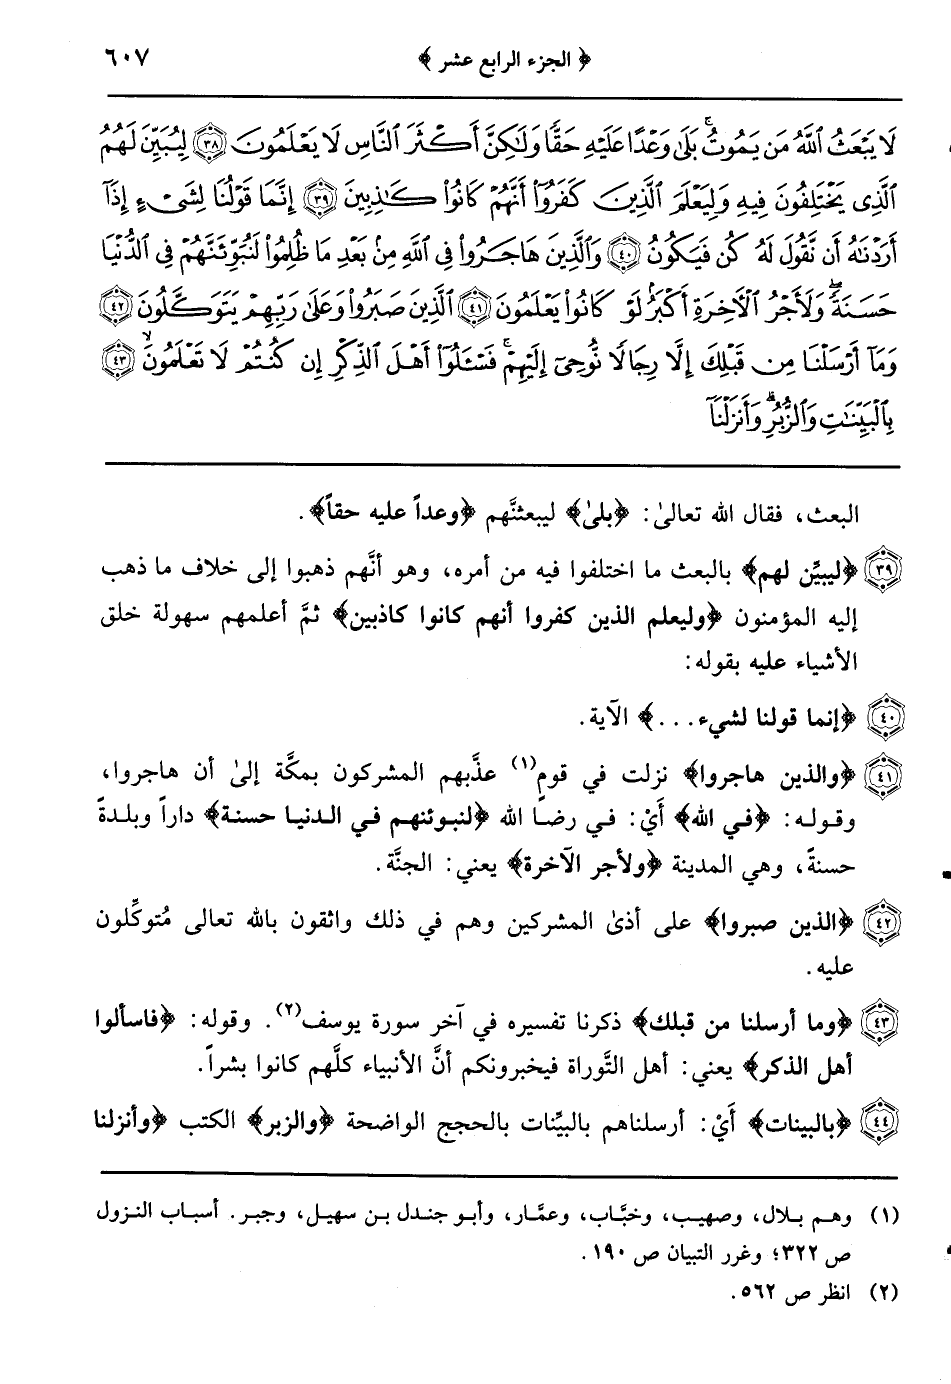 ﴿ الجزء الرابع عشر ﴾ ٦٠٧
لَا يَبْعَثُ ٱللَّهُ مَن يَمُوتُ ۚ بَلَىٰ وَعْدًا عَلَيْهِ حَقًّا وَلَـٰكِنَّ أَكْثَرَ ٱلنَّاسِ لَا يَعْلَمُونَ ٣٨ لِيُبَيِّنَ لَهُمُ
ٱلَّذِى يَخْتَلِفُونَ فِيهِ وَلِيَعْلَمَ ٱلَّذِينَ كَفَرُوٓا۟ أَنَّهُمْ كَانُوا۟ كَـٰذِبِينَ ٣٩ إِنَّمَا قَوْلُنَا لِشَىْءٍ إِذَآ
أَرَدْنَـٰهُ أَن نَّقُولَ لَهُۥ كُن فَيَكُونُ ٤٠ وَٱلَّذِينَ هَاجَرُوا۟ فِى ٱللَّهِ مِنۢ بَعْدِ مَا ظُلِمُوا۟ لَنُبَوِّئَنَّهُمْ فِى ٱلدُّنْيَا
حَسَنَةً ۖ وَلَأَجْرُ ٱلْـَٔاخِرَةِ أَكْبَرُ ۚ لَوْ كَانُوا۟ يَعْلَمُونَ ٤١ ٱلَّذِينَ صَبَرُوا۟ وَعَلَىٰ رَبِّهِمْ يَتَوَكَّلُونَ ٤٢
وَمَآ أَرْسَلْنَا مِن قَبْلِكَ إِلَّا رِجَالًا نُّوحِىٓ إِلَيْهِمْ ۚ فَسْـَٔلُوٓا۟ أَهْلَ ٱلذِّكْرِ إِن كُنتُمْ لَا تَعْلَمُونَ ٤٣
بِٱلْبَيِّنَـٰتِ وَٱلزُّبُرِ ۗ وَأَنزَلْنَآ
البعث، فقال الله تعالىٰ: ﴿بلىٰ﴾ ليبعثنَّهم ﴿وعداً عليه حقاً﴾.
٣٩ ﴿ليبيِّن لهم﴾ بالبعث ما اختلفوا فيه من أمره، وهو أنَّهم ذهبوا إلى خلاف ما ذهب
إليه المؤمنون ﴿وليعلم الذين كفروا أنهم كانوا كاذبين﴾ ثمَّ أعلمهم سهولة خلق
الأشياء عليه بقوله:
٤٠ ﴿إنما قولنا لشيء...﴾ الآية.
٤١ ﴿والذين هاجروا﴾ نزلت في قوم(١) عذَّبهم المشركون بمكَّة إلىٰ أن هاجروا،
وقوله: ﴿في الله﴾ أَيْ: في رضا الله ﴿لنبوئنهم في الدنيا حسنة﴾ داراً وبلدةً
حسنةً، وهي المدينة ﴿ولأجر الآخرة﴾ يعني: الجنَّة.
٤٢ ﴿الذين صبروا﴾ على أذىٰ المشركين وهم في ذلك واثقون بالله تعالى مُتوكِّلون
عليه.
٤٣ ﴿وما أرسلنا من قبلك﴾ ذكرنا تفسيره في آخر سورة يوسف(٢). وقوله: ﴿فاسألوا
أهل الذكر﴾ يعني: أهل التَّوراة فيخبرونكم أنَّ الأنبياء كلَّهم كانوا بشراً.
٤٤ ﴿بالبينات﴾ أَيْ: أرسلناهم بالبيِّنات بالحجج الواضحة ﴿والزبر﴾ الكتب ﴿وأنزلنا
(١) وهم بلال، وصهيب، وخبَّاب، وعمَّار، وأبو جندل بن سهيل، وجبر. أسباب النزول
ص ٣٢٢؛ وغرر التبيان ص ١٩٠.
(٢) انظر ص ٥٦٢.